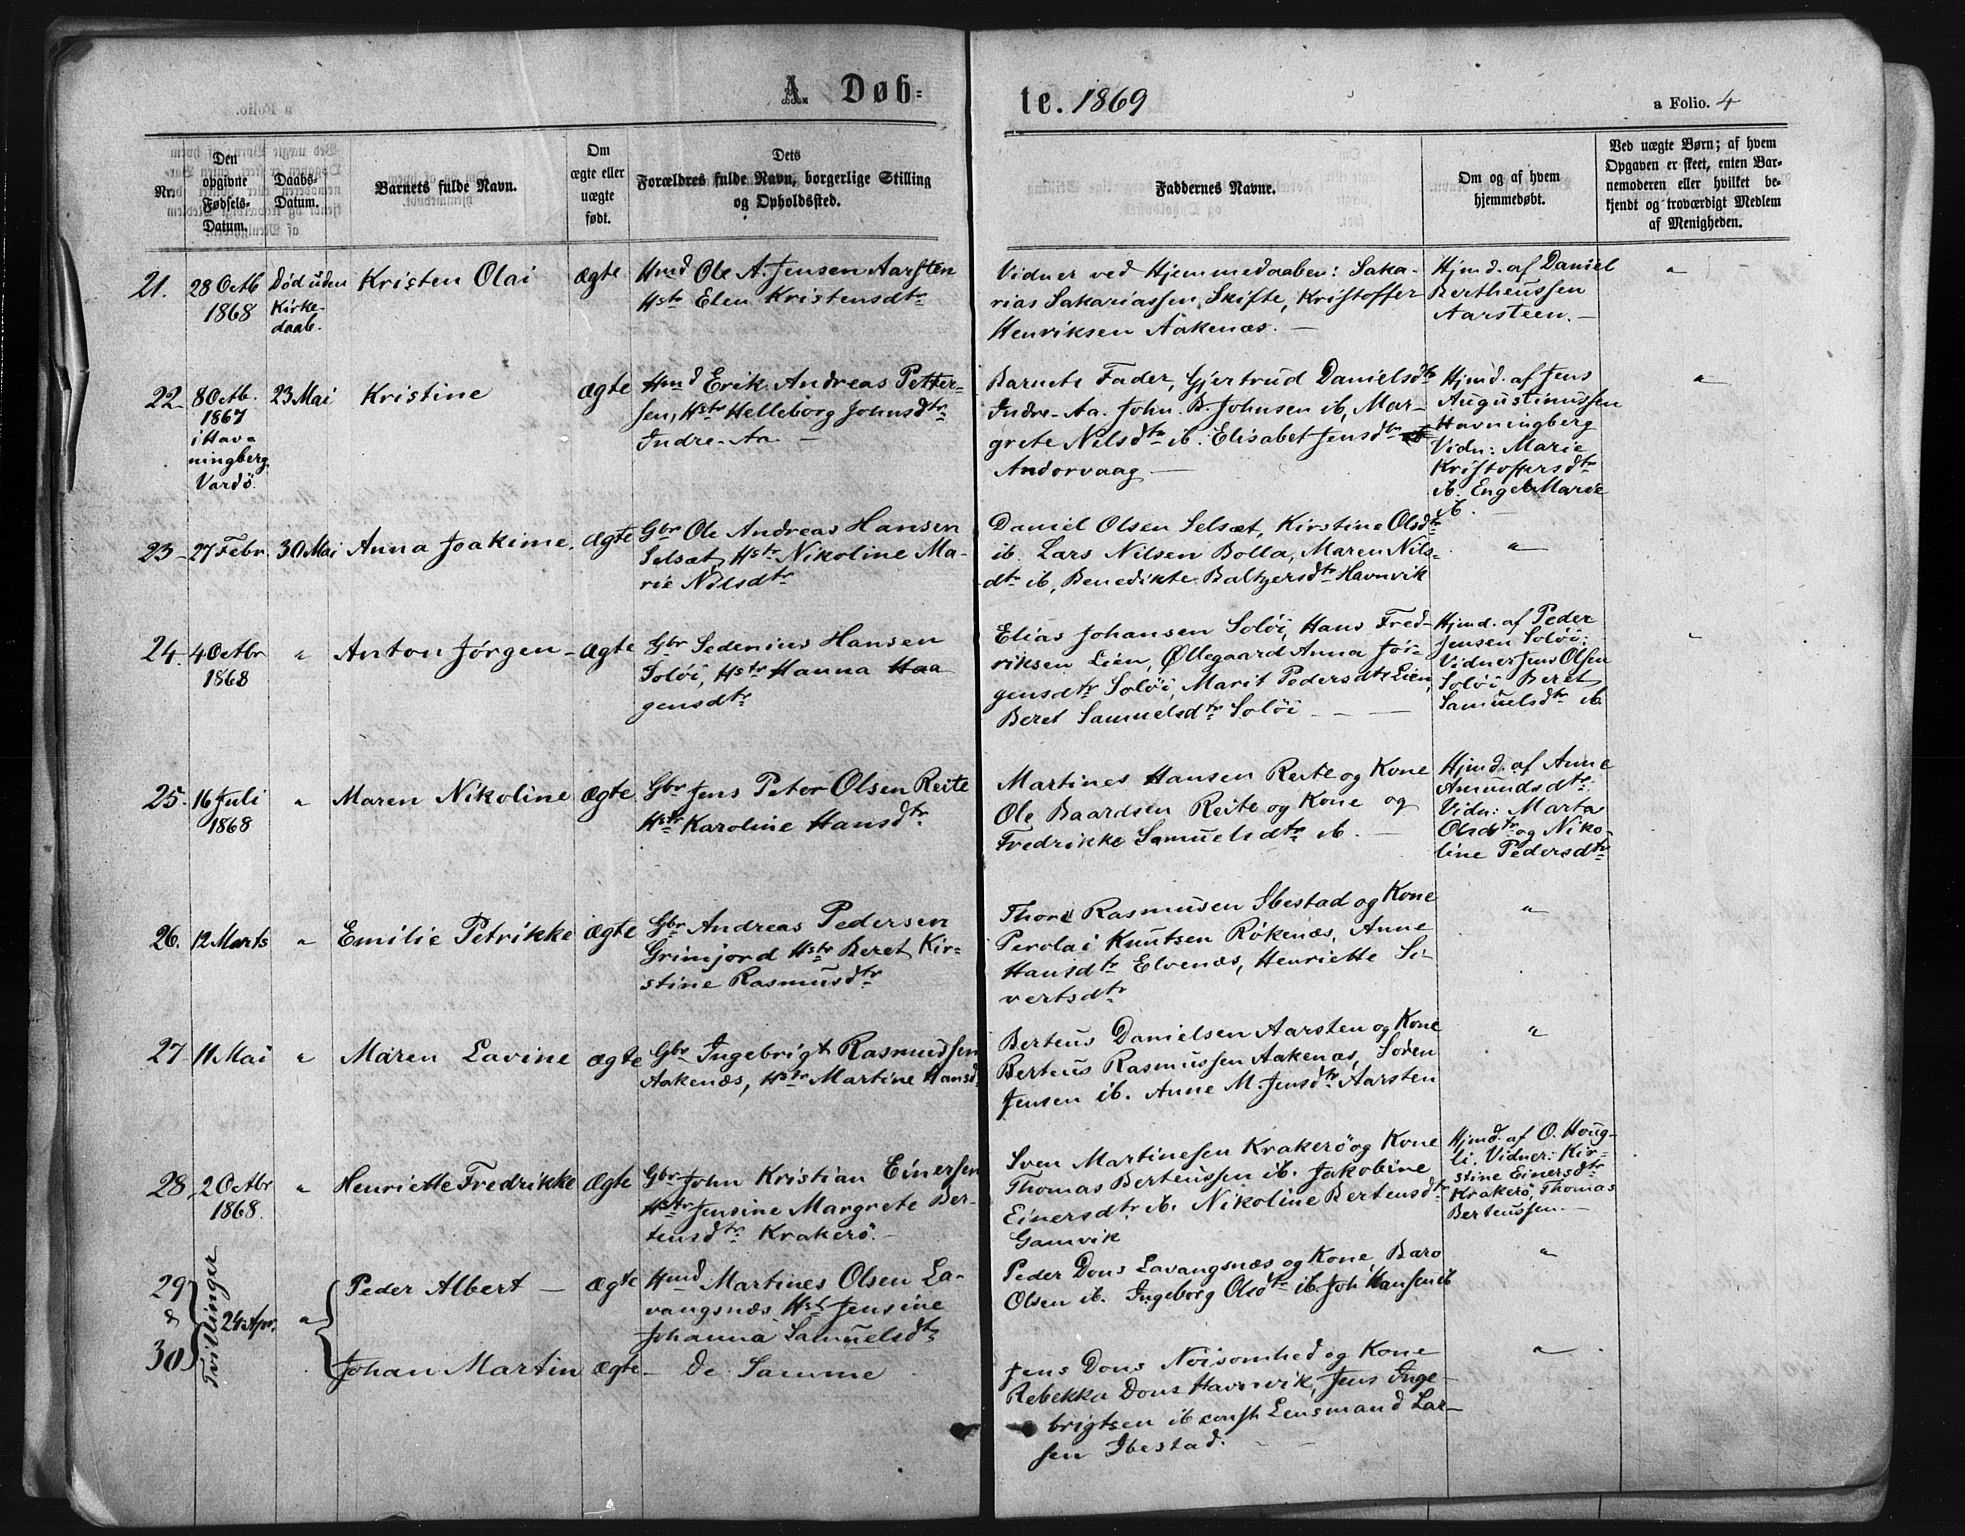 A. Døb=
te. 1869
a Folio. 4
Nr.
Den
opgivne
Fødsels-
Datum.
Daabs-
Datum.
Barnets fulde Navn.
Om
ægte eller
uægte
født.
Dets
Forældres fulde Navn, borgerlige Stilling
og Opholdssted.
Faddernes Navne.
Om og af hvem
hjemmedøbt.
Ved uægte Børn; af hvem
Opgaven er skeet, enten Bar-
nemoderen eller hvilket be-
kjendt og troværdigt Medlem
af Menigheden.
21.
28 Octb
1868
Død uden
Kirke-
daab.
Kristen Olai
ægte
Hmd Ole A. Jensen Aarsten
Hstr Elen Kristensdtr
Vidner ved Hjemmedaaben: Saka-
rias Sakariassen Skifte, Kristoffer
Henriksen Aakenæs. —
Hjmd. af Daniel
Bertheussen
Aarsteen. —
"
22
8 Octb.
1867
i Hav-
ningberg
Vardö.
23 Mai
Kristine
ægte
Hmd Erik Andreas Petter-
sen, Hstr Helleborg Johnsdtr
Indre-Aa. —
Barnets Fader, Gjertrud Danielsdtr
Indre-Aa. John B. Johnsen ib, Mar-
grete Nilsdtr ib. Elisabet Jensdtr
Andorvaag —
Hjmd. af Jens
Augustinussen
Havningberg
Vidn: Marie
Kristoffersdtr
ib. Engel Marie
ib. —
"
23
27 Febr.
30 Mai
Anna Joakime.
ægte
Gbr Ole Andreas Hansen
Selsæt, Hstr Nikoline Ma-
rie Nilsdtr
Daniel Olsen Selsæt, Kirstine Olsdtr
ib. Lars Nilsen Bolla, Maren Nils-
dtr ib, Benedikte Baltzersdtr Havnvik
"
24.
4 Octbr
1868
"
Anton Jørgen
ægte
Gbr Sedenius Hansen
Soløi, Hstr Hanna Haa
gensdtr
Elias Johansen Soløi, Hans Fred-
riksen Lien, Øllegaard Anna Jør-
gensdtr Soløi, Marit Pedersdtr Lien,
Beret Samuelsdtr Soløi — —
Hjmd. af Peder
Jensen Soløi:
Vidner Jens Olsen
Soløi Beret
Samuelsdtr ib.
"
25.
16 Juli
1868
"
Maren Nikoline
ægte
Gbr Jens Peter Olsen Reite
Hstr Karoline Hansdtr
Martines Hansen Reite og Kone
Ole Baardsen Reite og Kone og
Fredrikke Samuelsdtr ib. —
Hjmd. af Anne
Amundsdtr.
Vidn: Marta
Olsdtr og Niko-
line Pedersdtr
26.
12 Marts
"
Emilie Petrikke
ægte
Gbr Andreas Pedersen
Grimjord Hstr Beret Kir-
stine Rasmusdtr
Thore Rasmusen Ibestad og Kone
Perolai Knutsen Rökenæs, Anne
Hansdtr Elvenæs, Henriette Si-
vertsdtr
"
27
11 Mai
"
Maren Lavine
ægte
Gbr Ingebrigt Rasmussen
Aakenæs, Hstr Martine Hansd.
Berteus Danielsen Aarsten og Kone
Berteus Rasmussen Aakenæs, Sören
Jensen ib. Anne M. Jensdtr Aarsten
"
28
2 Octbr
1868.
"
Henriette Fredrikke
ægte
Gbr John Kristian Einersen
Hstr Jensine Margrete Ber-
teusdtr Krakerö. —
Sven Martinesen Krakerö og Kone
Thomas Berteussen ib. Jakobine
Einersdtr ib. Nikoline Berteusdtr
Gamvik
Hjmd. af O. Houg-
li. Vidner: Kir-
stine Einersdtr
Krakerö, Thomas
Berteussen. —
29
&
30
Tvillinger
24 Apr.
"
Peder Albert —
ægte
Hmd Martines Olsen La-
vangsnæs Hstr Jensine
Johanna Samuelsdtr
Peder Dons Lavangsnæs og Kone, Baro
Olsen ib. Ingeborg Olsdtr ib. Joh Hansen ib
"
Johan Martin
ægte
— De Samme
Jens Dons Nöisomhed og Kone
Rebekka Dons Havnvik, Jens Inge-
brigtsen ib const Lensmand Lar-
sen Ibestad. — —
"